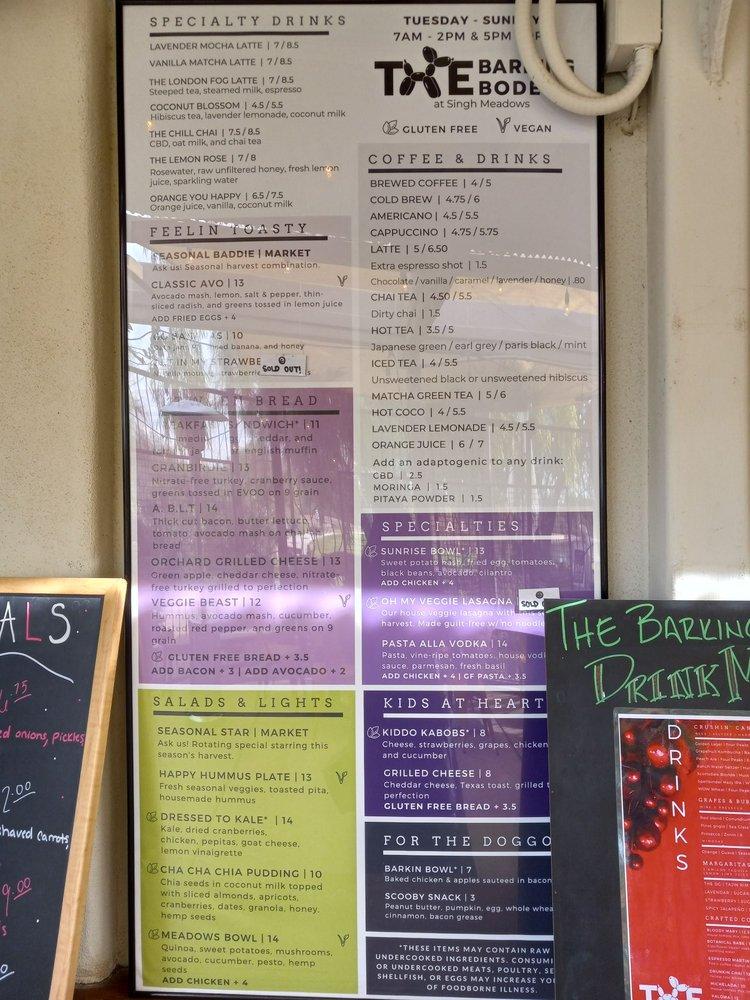 SPECIALTY DRINKS
LAVENDER MOCHA LATTE | 7 / 8.5
VANILLA MATCHA LATTE | 7 / 8.5
THE LONDON FOG LATTE | 7 / 8.5
Steeped tea, steamed milk, espresso
COCONUT BLOSSOM | 4.5 / 5.5
Hibiscus tea, lavender lemonade, coconut milk
THE CHILL CHAI | 7.5 / 8.5
CBD, oat milk, and chai tea
THE LEMON ROSE | 7 / 8
Rosewater, raw unfiltered honey, fresh lemon
juice, sparkling water
ORANGE YOU HAPPY | 6.5 / 7.5
Orange juice, vanilla, coconut milk
FEELIN TOASTY
SEASONAL BADDIE | MARKET
Ask us! Seasonal harvest combination.
CLASSIC AVO | 13
Avocado mash, lemon, salt & pepper, thin-
sliced radish, and greens tossed in lemon juice
ADD FRIED EGGS + 4
| 10
banana, and honey
IN MY
SOLD OUT!
BREAD
11
english muffin
CRANBIRDIE | 13
Nitrate-free turkey, cranberry sauce,
greens tossed in EVOO on 9 grain
A. B.L.T | 14
Thick cut bacon, butter lettuce,
tomato, avocado mash on
bread
ORCHARD GRILLED CHEESE | 13
Green apple, cheddar cheese, nitrate-
free turkey grilled to perfection
VEGGIE BEAST | 12
Hummus, avocado mash, cucumber,
roasted red pepper, and greens on 9
grain
GLUTEN FREE BREAD + 3.5
ADD BACON + 3 | ADD AVOCADO + 2
SALADS & LIGHTS
SEASONAL STAR | MARKET
Ask us! Rotating special starring this
season's harvest.
HAPPY HUMMUS PLATE | 13
Fresh seasonal veggies, toasted pita,
housemade hummus
DRESSED TO KALE* | 14
Kale, dried cranberries,
chicken, pepitas, goat cheese,
lemon vinaigrette
CHA CHA CHIA PUDDING | 10
Chia seeds in coconut milk topped
with sliced almonds, apricots,
cranberries, dates, granola, honey,
hemp seeds
MEADOWS BOWL | 14
Quinoa, sweet potatoes, mushrooms,
avocado, cucumber, pesto, hemp
seeds
ADD CHICKEN + 4
TUESDAY -
7AM - 2PM & 5PM
THE
at Singh Meadows
GLUTEN FREE VEGAN
COFFEE & DRINKS
BREWED COFFEE | 4 / 5
COLD BREW | 4.75 / 6
AMERICANO | 4.5 / 5.5
CAPPUCCINO | 4.75 / 5.75
LATTE | 5 / 6.50
Extra espresso shot | 1.5
Chocolate / vanilla / caramel / lavender / honey | .80
CHAI TEA | 4.50 / 5.5
Dirty chai | 1.5
HOT TEA | 3.5 / 5
Japanese green / earl grey / paris black / mint
ICED TEA | 4 / 5.5
Unsweetened black or unsweetened hibiscus
MATCHA GREEN TEA | 5 / 6
HOT COCO | 4 / 5.5
LAVENDER LEMONADE | 4.5 / 5.5
ORANGE JUICE | 6 / 7
Add an adaptogenic to any drink:
CBD | 2.5
MORINGA | 1.5
PITAYA POWDER | 1.5
SPECIALTIES
SUNRISE BOWL* | 13
Sweet potato hash, fried egg, tomatoes,
black beans, avocado, cilantro
ADD CHICKEN + 4
OH MY VEGGIE LASAGNA
SOLD
Our house veggie lasagna
harvest. Made guilt-free w/ no
PASTA ALLA VODKA | 14
Pasta, vine-ripe tomatoes, house
sauce, parmesan, fresh basil
ADD CHICKEN + 4 | GF PASTA + 3.5
KIDS AT HEART
KIDDO KABOBS* | 8
Cheese, strawberries, grapes, chicken
and cucumber
GRILLED CHEESE | 8
Cheddar cheese, Texas toast, grilled
perfection
GLUTEN FREE BREAD + 3.5
FOR THE DOGGO
BARKIN BOWL* | 7
Baked chicken & apples sauteed in
SCOOBY SNACK | 3
Peanut butter, pumpkin, egg, whole
cinnamon, bacon grease
*THESE ITEMS MAY CONTAIN RAW
UNDERCOOKED INGREDIENTS.
OR UNDERCOOKED MEATS, POULTRY,
SHELLFISH, OR EGGS MAY INCREASE
OF FOODBORNE ILLNESS.
onions, pickles
shaved carrots,
THE BARKING
DRINK
DRINKS
THE